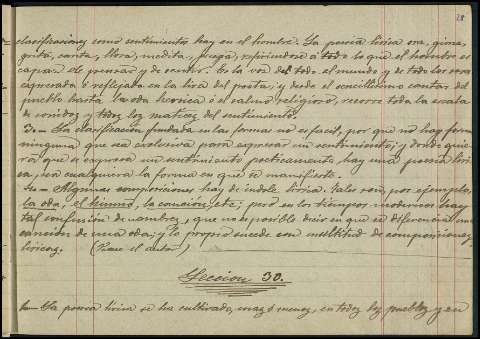 28
clasificaciones como sentimientos hay en el hombre. La poesía lírica ora, gime,
grita, canta, llora, medita, ruega, refiriéndose á todo lo que el hombre es
capaz de pensar y de sentir. Es la voz del todo el mundo y de todos los seres
expresada ó reflejada en la lira del poeta; y desde el sencillísimo cantar del
pueblo hasta la oda heroica ó el salmo religioso, recorre toda la escala
de sonidos y todos los matices del sentimiento.
La clasificación fundada en las formas no es facil, por que no hay forma
ninguna que sea esclusiva para espresar un sentimiento; y donde quie-
ra que se espresa un sentimiento poeticamente hay una poesía líri-
ca, sea cualquiera la forma en que se manifieste.
Algunas composiciones hay de índole lírica. Tales son, por ejemplo,
la oda, el himno, la canción, etc; pero en los tiempos modernos hay
tal confusion de nombres, que no es posible decir en que se diferencia una
canción de una oda; y lo propio sucede con multitud de composiciones
líricas. (Pone el autor)
Seccion 30.
La poesía lírica se ha cultivado, mas ó menos, en todos los pueblos y en